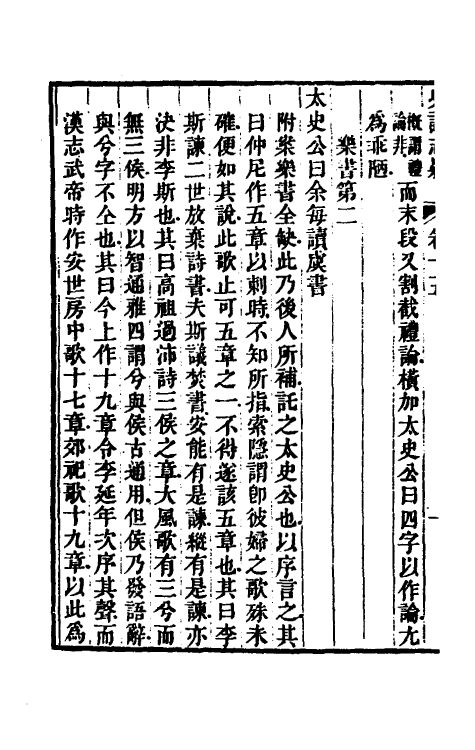 槪謂禮論非而末段又割截禮論橫加太史公曰四字以作論尢
爲乖陋
樂書第二
太史公曰余每讀虞書
附案樂書全缺此乃後人所補託之太史公也以序言之其
曰仲尼作五章以刺時不知所指索隱謂卽彼婦之歌殊未
確便如其說此歌止可五章之一不得遂該五章也其曰李
斯諫二世放棄詩書夫斯議焚書安能有是諫縱有是諫亦
決非李斯也其曰高祖過沛詩三侯之章大風歌有三兮而
無三侯明方以智通雅四謂兮與侯古通用但侯乃發語辭
與兮字不仝也其曰今上作十九章令李延年次序其聲而
漢志武帝時作安世房中歌十七章郊祀歌十九章以此爲